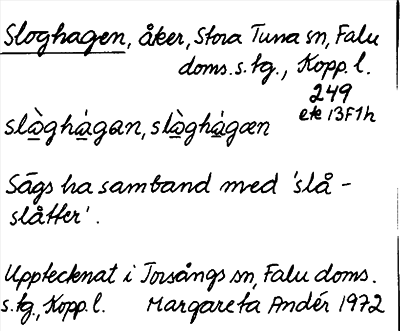 Sloghagen, åker, Stora Tuna sn, Falu
doms. s. tg., Kopp. l.
249
ek 13F1h
slò̲ghá̲gan, slò̲ghá̲gæn
Sägs ha samband med 'slå -
slåtter'.
Upptecknat i Torsångs sn, Falu doms.
s. tg., Kopp. l. Margareta Andér 1972